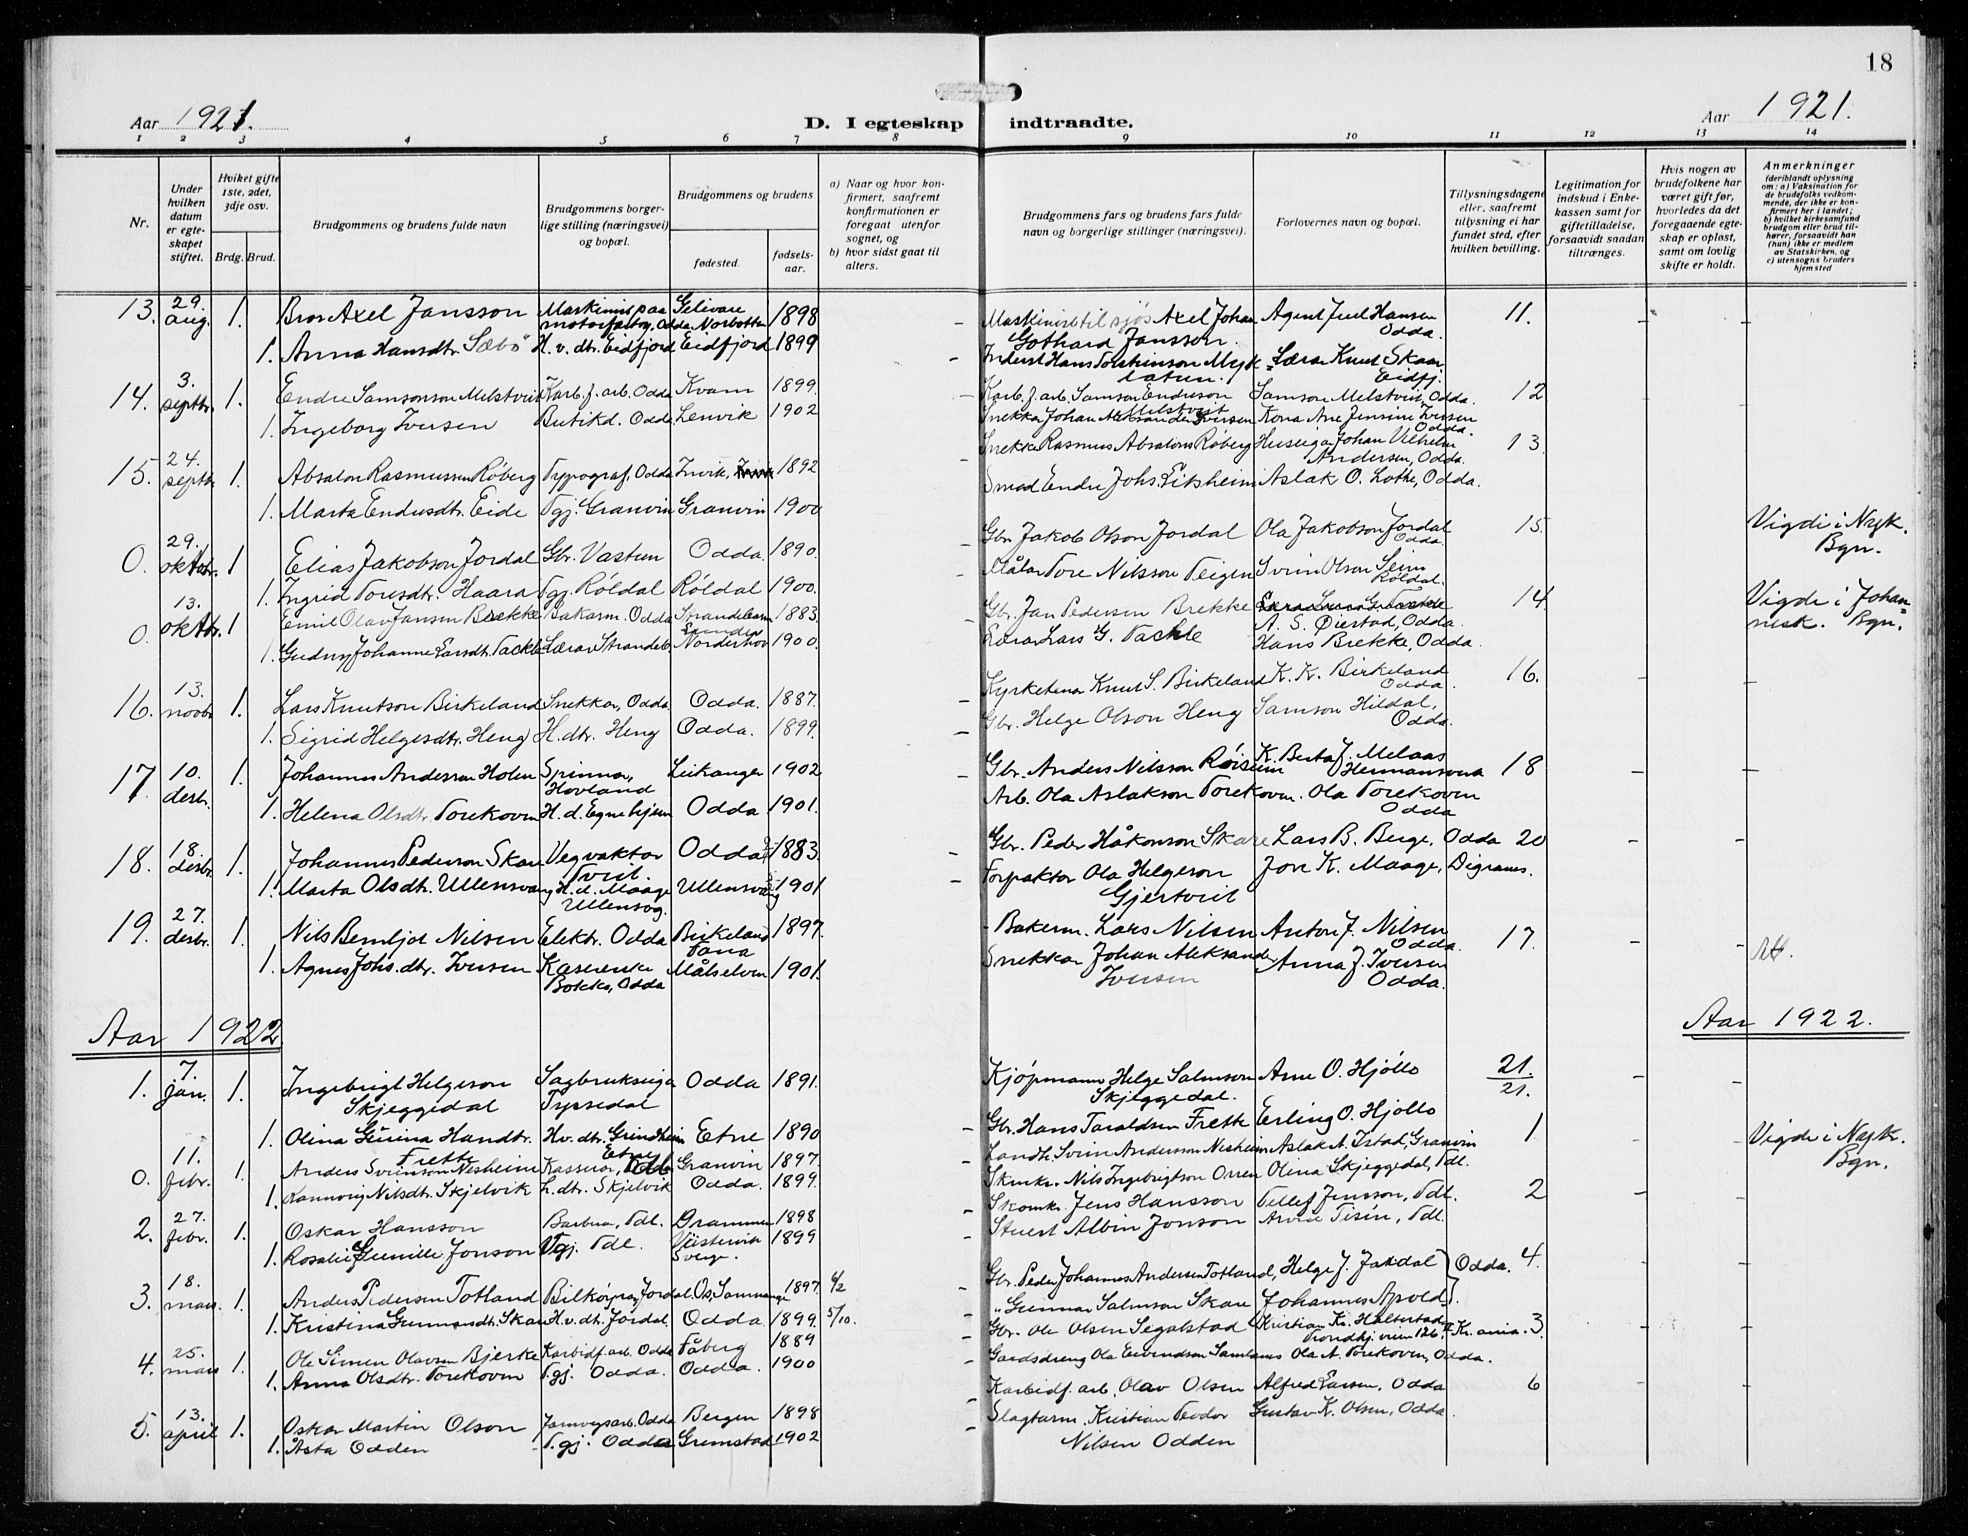 18
Aar 1921. D. I egteskap indtraadte. Aar 1921.
1 2 3 4 5 6 7 8 9 10 11 12 13 14
Nr.
Under hvilken datum er egteskapet stiftet.
Hvilket gifte 1ste, 2det, 3dje osv.
Brdg. Brud.
Brudgommens og brudens fulde navn
Brudgommens borgerlige stilling (næringsvei) og bopæl.
Brudgommens og brudens
fødested.
fødselsaar.
a) Naar og hvor konfirmert, saafremt konfirmationen er foregaat utenfor sognet, og
b) hvor sidst gaat til alters.
Brudgommens fars og brudens fars fulde navn og borgerlige stillinger (næringsvei).
Forlovernes navn og bopæl.
Tillysningsdagene eller, saafremt tillysning ei har fundet sted, efter hvilken bevilling.
Legitimation for indskud i Enkekassen samt for giftetilladelse, forsaavidt saadan tiltrænges.
Hvis nogen av brudefolkene har været gift før, hvorledes da det foregaaende egteskap er opløst, samt om lovlig skifte er holdt.
Anmerkninger (deriblandt oplysning om: a) Vaksination for de brudefolks vedkommende, der ikke er konfirmert her i landet; b) hvilket kirkesamfund brudgom eller brud tilhører, forsaavidt han (hun) ikke er medlem av Statskirken, og c) utensogns bruders hjemsted
13. 29. aug. 1. Bror Axel Jansson Maskinist paa motorfartøy, Odda Gelivare Norbotten 1898 Maskinist til sjøs Axel Johan Gothard Jansson. Agent Juel Hansen Odda. 11.
1. Anna Hansdtr. Sæbø H. v. dtr. Eidfjord Eidfjord 1899 Inderst Hans Torsteinson Myklatun. Lærar Knut Skaar Eidfj.
14. 3. septbr. 1. Endre Samsonson Melstveit Karb. f. arb. Odda Kvam 1899. Karb. f. arb. Samson Endreson Melstveit Samson Melstveit, Odda. 12
1. Ingeborg Iversen Butikd. Odda Lenvik 1902 Snekkar Johan Aleksander Iversen Kona Ane Jensine Iversen Odda.
15. 24. septbr. 1. Absalon Rasmussen Røberg Typograf, Odda Invik, 1892 Snekkar Rasmus Absalons. Røberg Huseigar Johan Vilhelm Andersen, Odda. 13
1. Marta Endresdtr. Eide Tgj. Granvin Granvin 1900 Smed Endre Johs. Eitsheim Aslak O. Lothe, Odda.
0. 29. oktbr. 1 Elias Jakobson Jordal Gbr. Vastun Odda 1890. Gbr. Jakob Olson Jordal Ola Jakobson Jordal Odda 15. Vigde i Nyk. Bgn.
1. Ingrid Toresdtr. Haara Tgj. Röldal Röldal 1900. Målar Tore Nilsson Teigen Svein Olson Seim Röldal.
0. 13. oktbr. 1 Emil Olav Jansen Brekke Bakarm. Odda Strandebarm 1883. Gbr. Jan Pedersen Brekke A. S. Øiestad, Odda. 14. Vigde i Johannesk. Bgn.
1. Gudny Johanne Larsdt. Tackle Lærar. Strandeb. Norderhov 1900. Lærar Lars G. Tackle Hans Brekke, Odda.
16. 13. novbr. 1. Lars Knutson Birkeland Snekkar, Odda Odda. 1887. Kyrketenar Knut S. Birkeland K. K. Birkeland Odda. 16.
1. Sigrid Helgesdtr. Heng H. dtr. Heng Odda. 1899. Gbr. Helge Olson Heng Samson Hildal, Odda.
17. 10. desbr. 1. Johannes Anderson Holen Spinnar, Hovland Leikanger 1902 Gbr. Anders Nilsson Röiseim K. Berta J. Melaas Hermansverk 18
1. Helena Olsdtr. Torekoven H. d. Egnehjem Odda 1901. Arb. Ola Aslakson Torekoven. Ola Torekoven Odda
18. 18. desbr. 1. Johannes Pederson Skare Vegvaktar Tveit. Odda 1883. Gbr. Peder Håkonson Skare Lars B. Berge, Odda 20
1. Marta Olsdtr. Ullensvang H. d. Maage Ullensvg. Ullensvang 1901 Forpaktar Ola Helgeson Gjertveit Jon K. Maage, Digranes.
19. 27. desbr. 1. Nils Bernljot Nilsen Elektr. Odda Birkeland Fana 1897. Bakerm. Lars Nilsen Anton J. Nilsen Odda. 17.
1. Agnes Johs. dtr. Iversen Odda Målselven 1901. Snekkar Johan Aleksander Iversen Anna J. Iversen Odda.
Aar 1922. Aar 1922.
1. 7. jan. 1. Ingebrigt Helgeson Skjeggedal Sagbrukseigar Tyssedal Odda 1891. Kjöpmann Helge Salmson Skjeggedal. Arne O. Hjöllo 21. 21.
1. Olina Gurina Hansdtr. Frette H. v. dtr. Grindheim Etne Etne 1890 Gbr. Hans Taraldsen Frette Erling O. Hjöllo
0. 11. febr. 1. Anders Sveinson Nesheim Kasserar, Odda Granvin 1897. Landh. Svein Anderson Nesheim Aslak A. Istad, Granvin 1 Vigde i Nyk. Bgn.
1. Rannveig Nilsdtr. Skjelvik L. dtr. Skjelvik Odda. 1899. Nils Ingebrigtson Orren Olina Skjeggedal, Tdl.
2. 27. febr. 1. Oskar Hansson Barber, Tdl. 1898 Skomkr. Jens Hansson Detlef Jensson, Tdl. 2
1. Rosalie Gunille Jonson Tgj. Tdl. Vestervik Sverge. 1899 Albin Jonson Arvid Tisén, Tdl.
3. 18. mars. 1. Anders Pedersen Totland Bilkøyrar, Jordal Os, Samnanger 1897. 6/2 Gbr. Peder Johannes Andersen Totland, Helge J. Jordal Odda. 4.
1. Kristina Gunnarsdtr. Skare H. v. dt. Jordal. Odda 1899. 5/10. " Gunnar Salmson Skare Johannes Apold.
4. 25. mars 1. Ole Simen Olavsen Bjerke Karbidf. arb. Odda Fåberg 1889 Gbr. Ole Olsen Segalstad Kristian Kr. Halterstad Trondhj. veien 126, Kr.ania. 3.
1. Anna Olsdtr. Torekoven T. gj. Odda. Odda. 1900 Gardsdreng Ola Eivendson Samlanes Ola A. Torekoven, Odda.
5. 13. april 1. Oskar Martin Olson Jarnvegsarb. Odda Bergen 1898 Karbidf. arb. Olav Olsen Alfred Larsen, Odda 6
1. Åsta Odden T. gj. Odda Grimstad 1902 Slagtarm. Kristian Teodor Nilsen Odden Gustav K. Olsen, Odda.